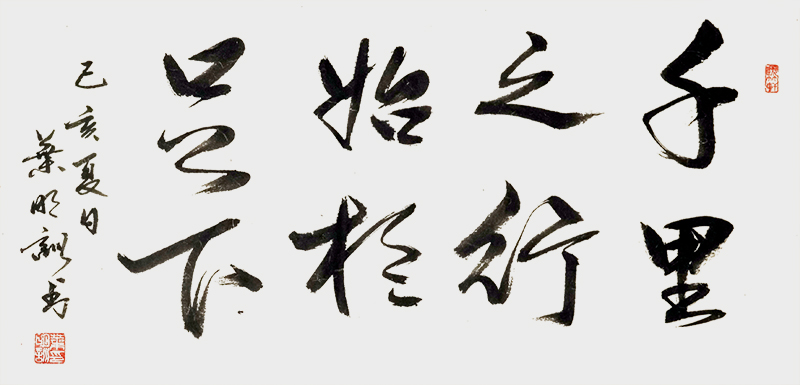 千里
之行
始於
足下
己亥夏日
葉明訓書